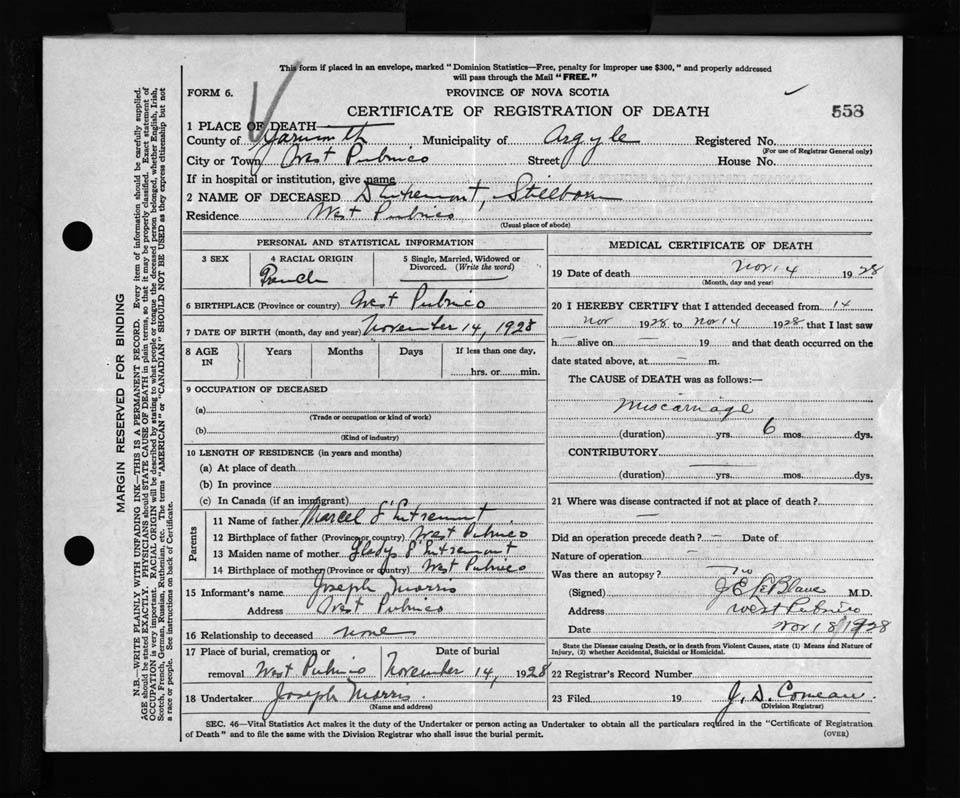 This form if placed in an envelope, marked "Dominion Statistics—Free, penalty for improper use $300," and properly addressed
will pass through the Mail "FREE."
FORM 6.
PROVINCE OF NOVA SCOTIA
CERTIFICATE OF REGISTRATION OF DEATH
558
1 PLACE OF DEATH—
County of Yarmouth Municipality of Argyle Registered No.
(For use of Registrar General only)
City or Town West Pubnico Street House No.
If in hospital or institution, give name
2 NAME OF DECEASED D'Entremont, Stillborn
Residence West Pubnico
(Usual place of abode)
PERSONAL AND STATISTICAL INFORMATION
3 SEX
4 RACIAL ORIGIN
French
5 Single, Married, Widowed or
Divorced. (Write the word)
6 BIRTHPLACE (Province or country) West Pubnico
7 DATE OF BIRTH (month, day and year) November 14, 1928
8 AGE
IN
Years Months Days If less than one day,
hrs. or min.
9 OCCUPATION OF DECEASED
(a)
(Trade or occupation or kind of work)
(b)
(Kind of industry)
10 LENGTH OF RESIDENCE (in years and months)
(a) At place of death
(b) In province
(c) In Canada (if an immigrant)
Parents
11 Name of father Marcel D'Entremont
12 Birthplace of father (Province or country) West Pubnico
13 Maiden name of mother Gladys D'Entremont
14 Birthplace of mother (Province or country) West Pubnico
15 Informant's name Joseph Morris
Address West Pubnico
16 Relationship to deceased none
17 Place of burial, cremation or Date of burial
removal West Pubnico November 14, 1928
18 Undertaker Joseph Morris.
(Name and address)
MEDICAL CERTIFICATE OF DEATH
19 Date of death Nov 14 1928
(Month, day and year)
20 I HEREBY CERTIFY that I attended deceased from 14
Nov 1928 to Nov 14 1928 that I last saw
h — alive on — 19 and that death occurred on the
date stated above, at — m.
The CAUSE of DEATH was as follows:—
Miscarriage
(duration) yrs. 6 mos. dys.
CONTRIBUTORY
(duration) yrs. mos. dys.
21 Where was disease contracted if not at place of death?
—
Did an operation precede death? — Date of
Nature of operation —
Was there an autopsy? no
(Signed) J E LeBlanc M.D.
Address West Pubnico
Date Nov 18/1928
State the Disease causing Death, or in death from Violent Causes, state (1) Means and Nature of
Injury, (2) whether Accidental, Suicidal or Homicidal.
22 Registrar's Record Number
23 Filed 19 J. D. Comeau.
(Division Registrar)
SEC. 46—Vital Statistics Act makes it the duty of the Undertaker or person acting as Undertaker to obtain all the particulars required in the "Certificate of Registration
of Death" and to file the same with the Division Registrar who shall issue the burial permit.
(OVER)
MARGIN RESERVED FOR BINDING
N.B.—WRITE PLAINLY WITH UNFADING INK—THIS IS A PERMANENT RECORD. Every item of information should be carefully supplied.
AGE should be stated EXACTLY. PHYSICIANS should STATE CAUSE OF DEATH in plain terms, so that it may be properly classified. Exact statement of
OCCUPATION is very important. RACIAL ORIGIN will be described by stating to what people or tongue the deceased person belonged, whether English, Irish,
Scotch, French, German, Russian, Ruthenian, etc. The terms "AMERICAN" or "CANADIAN" SHOULD NOT BE USED as they express citizenship but not
a race or people. See instructions on back of Certificate.